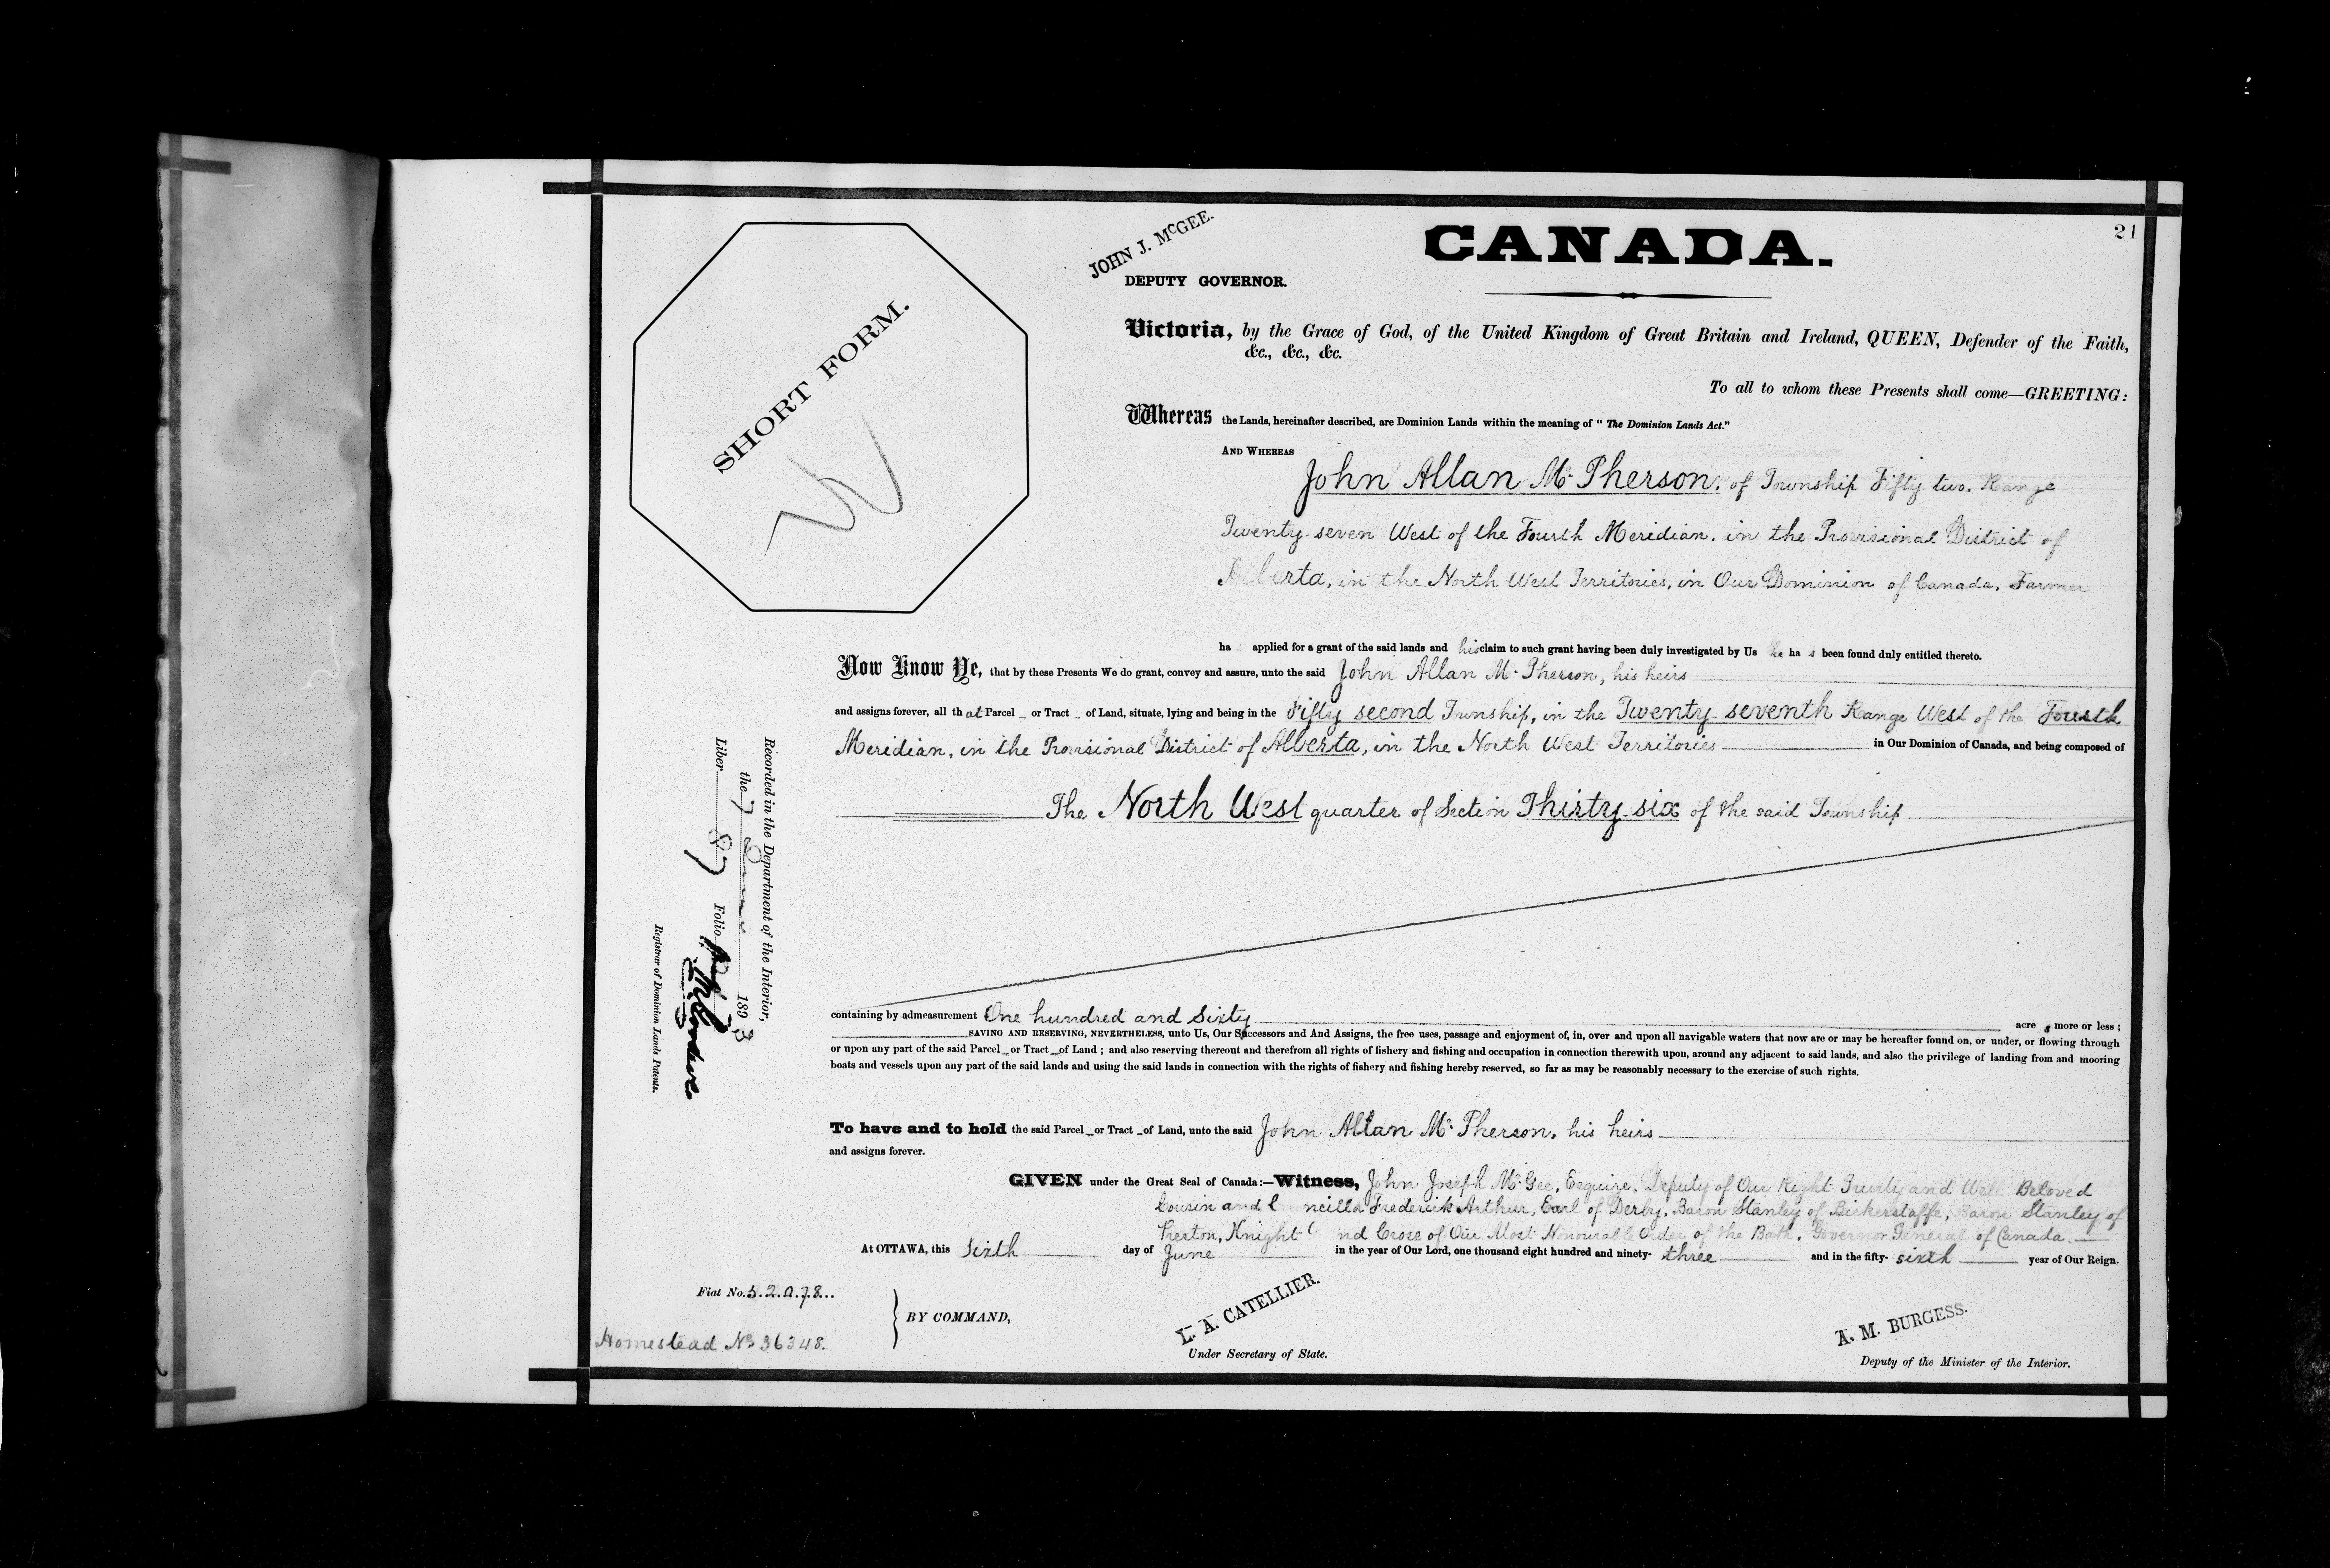 21
JOHN J. McGEE.
DEPUTY GOVERNOR.
CANADA.
SHORT FORM.
Victoria, by the Grace of God, of the United Kingdom of Great Britain and Ireland, QUEEN, Defender of the Faith,
&c., &c., &c.
To all to whom these Presents shall come—GREETING:
Whereas the Lands, hereinafter described, are Dominion Lands within the meaning of "The Dominion Lands Act."
AND WHEREAS
John Allan Mc Pherson, of Township Fifty two, Range
Twenty-seven West of the Fourth Meridian, in the Provisional District of
Alberta, in the North West Territories, in Our Dominion of Canada, Farmer
ha applied for a grant of the said lands and his claim to such grant having been duly investigated by Us he ha s been found duly entitled thereto.
Now Know Ye, that by these Presents We do grant, convey and assure, unto the said John Allan Mc Pherson, his heirs
and assigns forever, all that Parcel or Tract of Land, situate, lying and being in the Fifty second Township, in the Twenty seventh Range West of the Fourth
Meridian, in the Provisional District of Alberta, in the North West Territories in Our Dominion of Canada, and being composed of
The North West quarter of Section Thirty-six of the said Township
containing by admeasurement One hundred and Sixty acre s more or less;
SAVING AND RESERVING, NEVERTHELESS, unto Us, Our Successors and And Assigns, the free uses, passage and enjoyment of, in, over and upon all navigable waters that now are or may be hereafter found on, or under, or flowing through
or upon any part of the said Parcel or Tract of Land; and also reserving thereout and therefrom all rights of fishery and fishing and occupation in connection therewith upon, around any adjacent to said lands, and also the privilege of landing from and mooring
boats and vessels upon any part of the said lands and using the said lands in connection with the rights of fishery and fishing hereby reserved, so far as may be reasonably necessary to the exercise of such rights.
To have and to hold the said Parcel or Tract of Land, unto the said John Allan Mc Pherson, his heirs
and assigns forever.
GIVEN under the Great Seal of Canada:—Witness, John Joseph McGee, Esquire, Deputy of Our Right Trusty and Well Beloved
Cousin and C ncillor Frederick Arthur, Earl of Derby, Baron Stanley of Bickerstaffe, Baron Stanley of
Preston, Knight G nd Cross of Our Most Honourable Order of the Bath, Governor General of Canada.
At OTTAWA, this sixth day of June in the year of Our Lord, one thousand eight hundred and ninety- three and in the fifty- sixth year of Our Reign.
Fiat No. 52078
Homestead No 36348.
BY COMMAND,
L. A. CATELLIER.
Under Secretary of State.
A. M. BURGESS.
Deputy of the Minister of the Interior.
Recorded in the Department of the Interior,
the 7 June 1893
Liber 87 Folio
Registrar of Dominion Lands Patents.